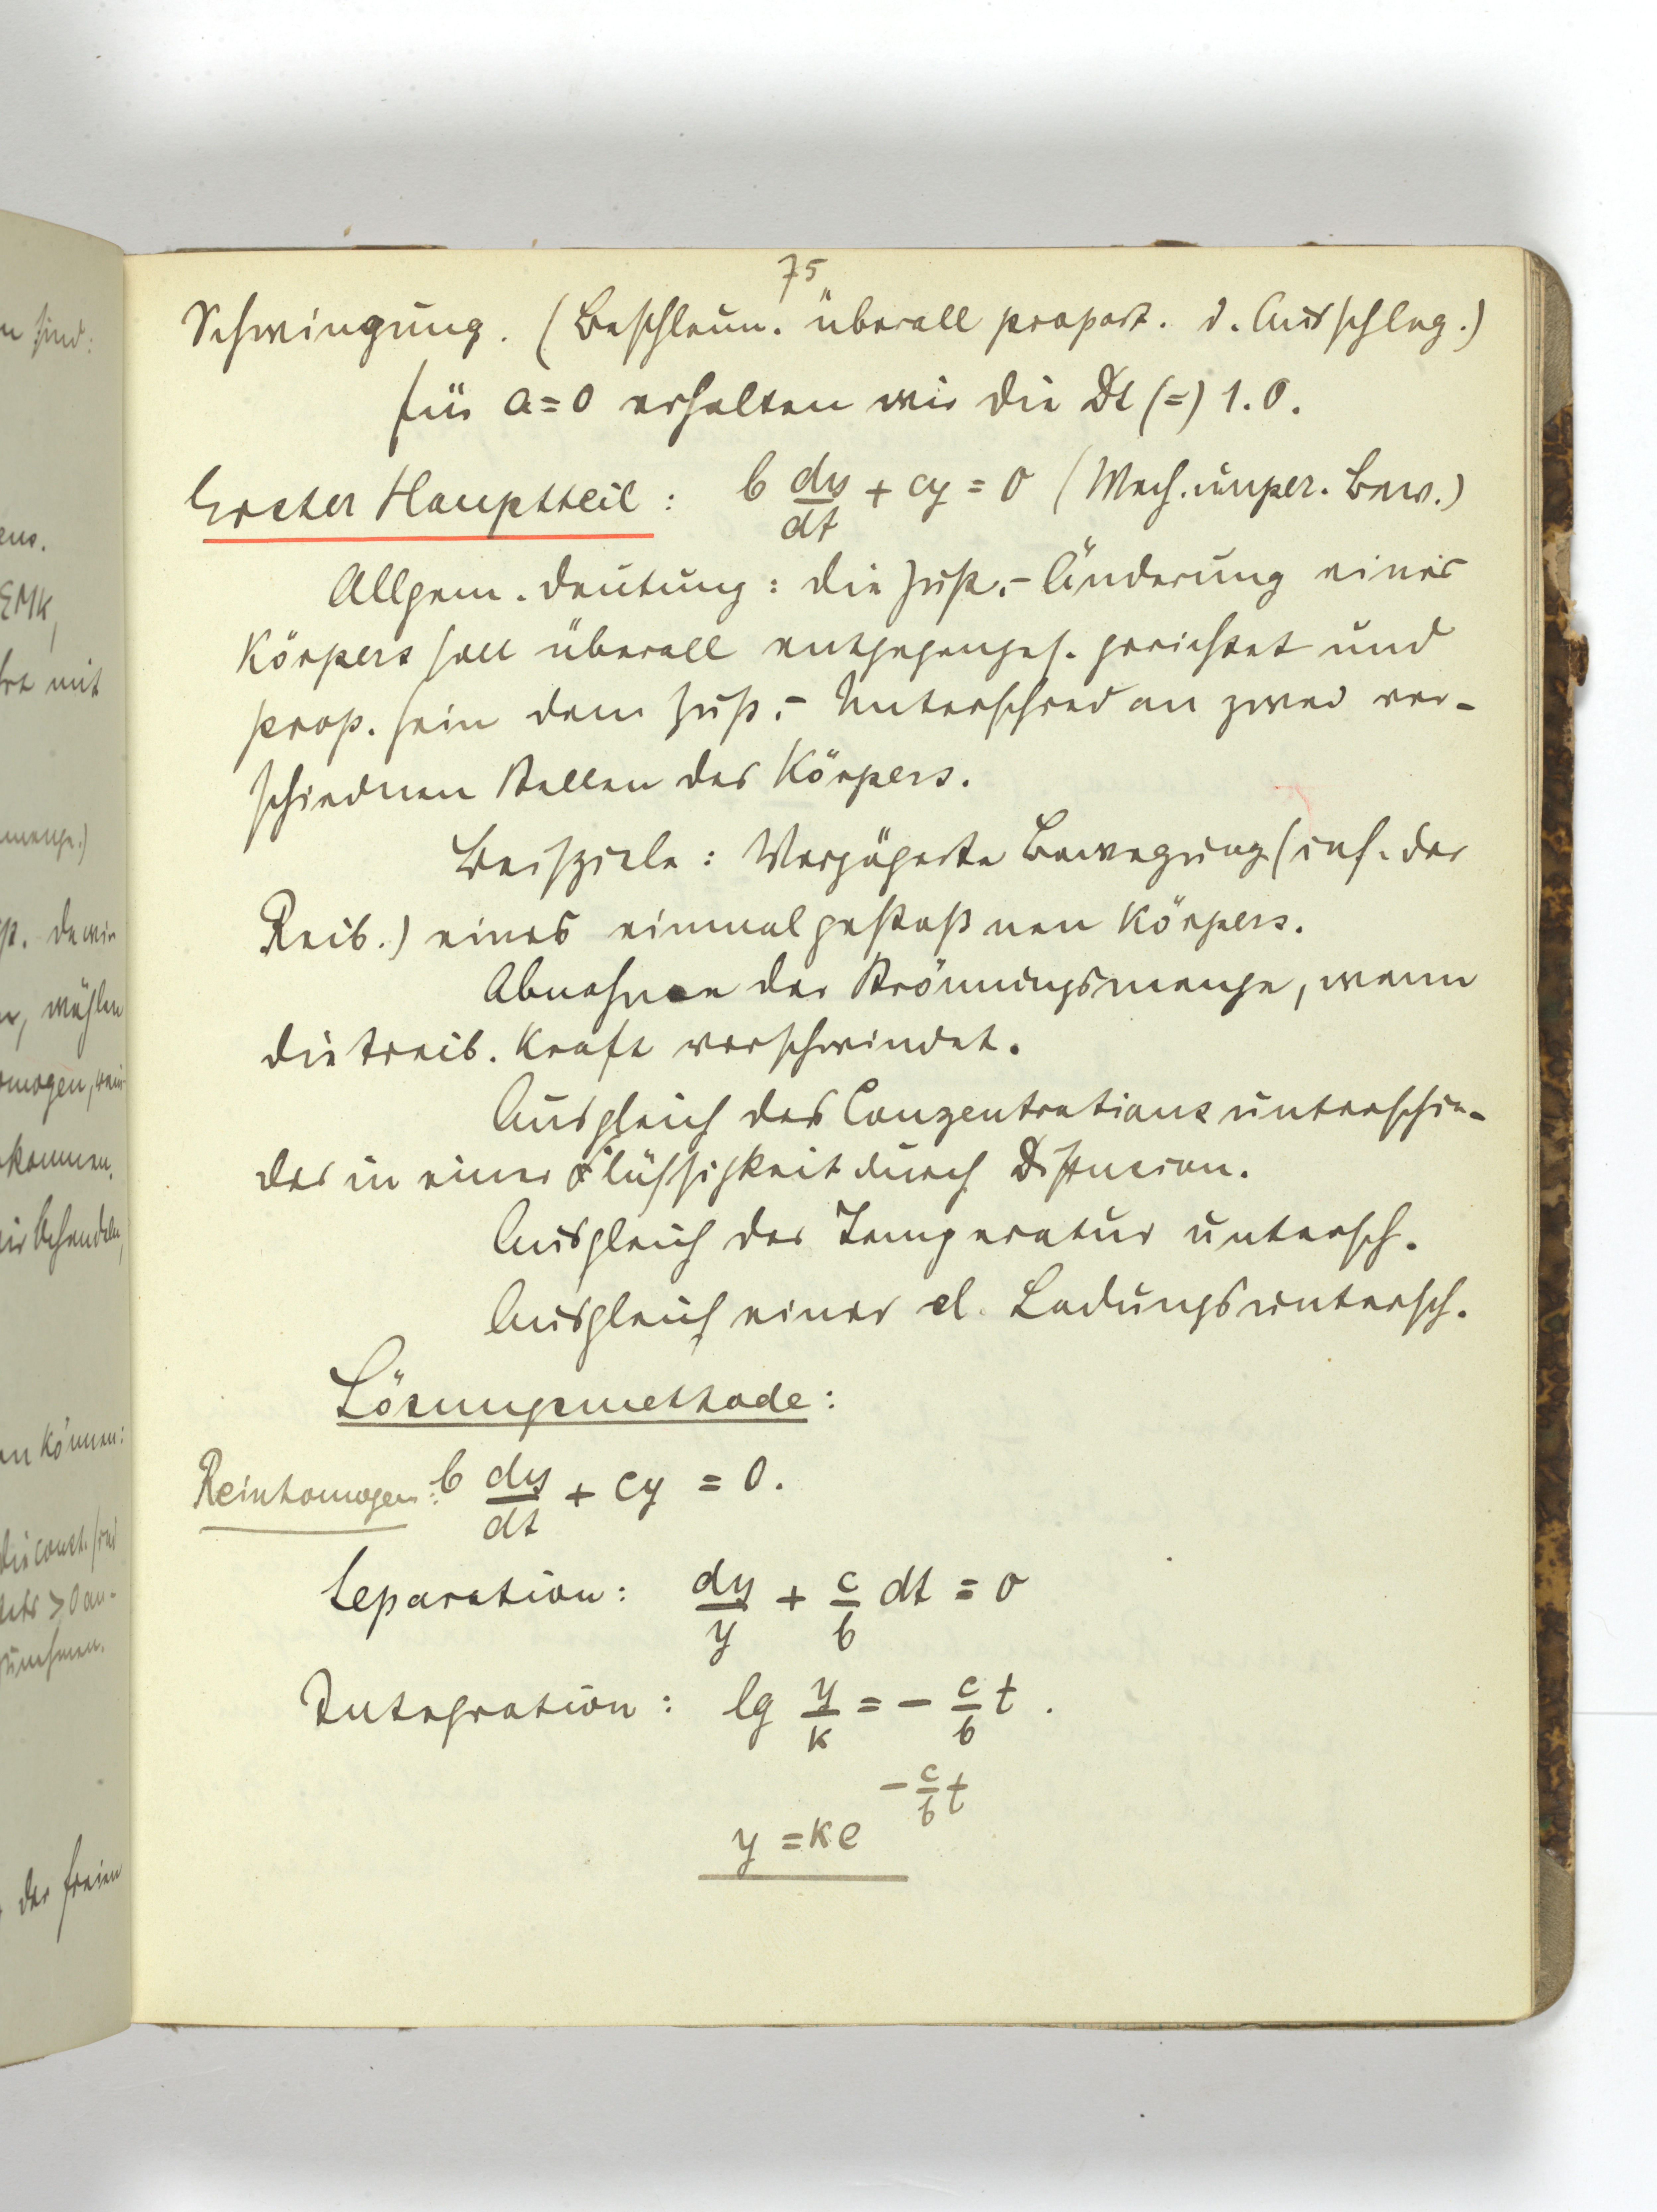 75
Schwingung. (Beschleun. überall proport. d. Ausschlag.)
für a=0 erhalten wir die Dl (=) 1.O.
Erster Hauptteil: b dy/dt + cy = 0 (Mech. unper. Bew.)
Allgem. Deutung: die Zust.-Änderung eines
Körpers soll überall entgegenges. gerichtet und
prop. sein dem Zust.-Unterschied an zwei ver-
schiednen Stellen des Körpers.
Beispiele: Verzögerte Bewegung (inf. der
Reib.) eines einmal gestoßnen Körpers.
Abnahme der Strömungsmenge, wenn
die treib. Kraft verschwindet.
Ausgleich des Conzentrations unterschie-
des in einer Flüssigkeit durch Diffusion.
Ausgleich des Temperatur untersch.
Ausgleich eines el. Ladungsuntersch.
Lösungsmethode:
Reinhomogen: b dy/dt + cy = 0.
Separation: dy/y + c/b dt = 0
Integration: lg y/k = - c/b t.
y = ke^(-c/b t)
n sind:
ens.
EMK,
mit
menge.)
wählen
omogen,
kommen.
behandeln,
können:
die const.
> 0 an-
zunehmen.
der freien